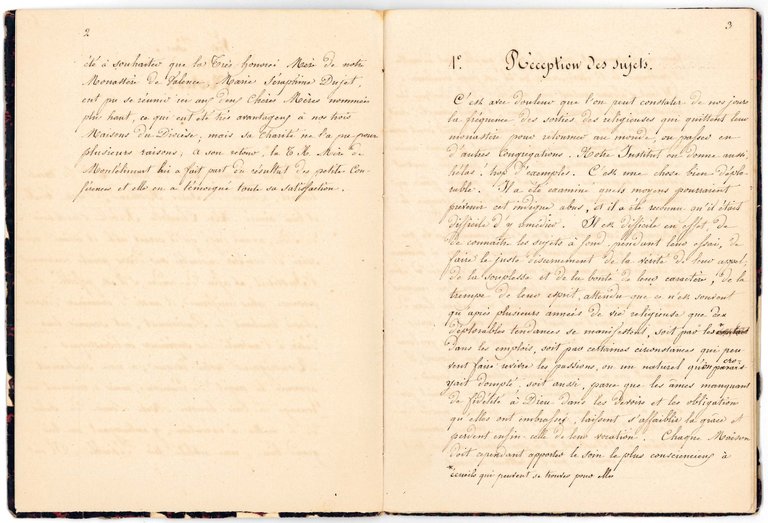 2
été à souhaiter que la Très honorée Mère de notre
Monastère de Valence, Marie Séraphine Dujet,
eut pu se réunir en aux deux Chères Mères nommées
plus haut, ce qui eut été très avantageux à nos trois
Maisons du Diocèse; mais sa Charité ne l'a pu pour
plusieurs raisons; à son retour, la T. R. Mère de
Montélimart lui a fait part du résultat des petites Con-
férences et elle en a témoigné toute sa satisfaction.
3
1º. Réception des sujets.
C'est avec douleur que l'on peut constater de nos jours
la fréquence des sorties des religieuses qui quittent leur
monastère pour retourner au monde, ou passer en
d'autres Congrégations. Notre Institut en donne aussi,
hélas! trop d'exemples. C'est une chose bien déplo-
rable. Il a été examiné quels moyens pourraient
prévenir cet indigne abus, et il a été reconnu qu'il était
difficile d'y remédier. Il est difficile en effet, de
de connaître les sujets à fond, pendant leur essai, de
faire le juste discernement de la vérité de leur appel,
de la souplesse et de la bonté de leur caractère, et de la
trempe de leur esprit, attendu que ce n'est souvent
qu'après plusieurs années de vie religieuse que de
déplorables tendances se manifestent, soit par les
dans les emplois, soit par certaines circonstances qui peu-
vent faire revivre les passions, ou un naturel qu'on cro-
yait dompté, soit aussi, parce que les âmes manquant
de fidélité à Dieu dans les devoirs et les obligations
qu'elles ont embrassés, laissent s'affaiblir la grâce et
perdent enfin celle de leur vocation. Chaque Maison
doit cependant apporter le soin le plus consciencieux à
*écueils qui peuvent se trouver pour elles